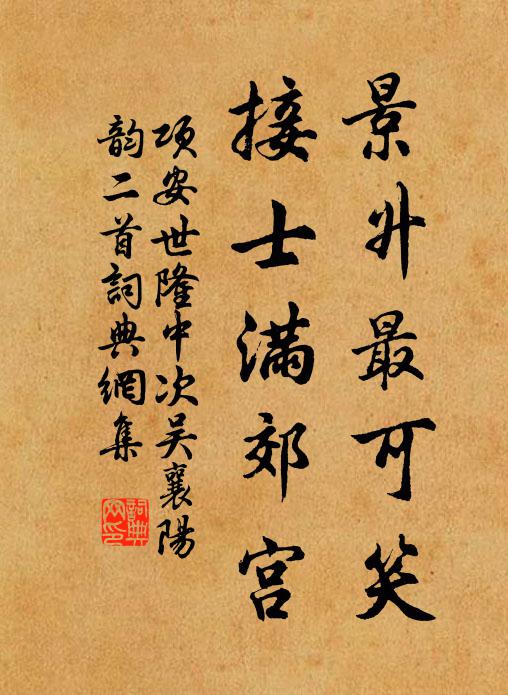 景升最可笑
接士满郊宫
项安世隆中次吴襄陽
韵二首詞典網集
詞典
网印